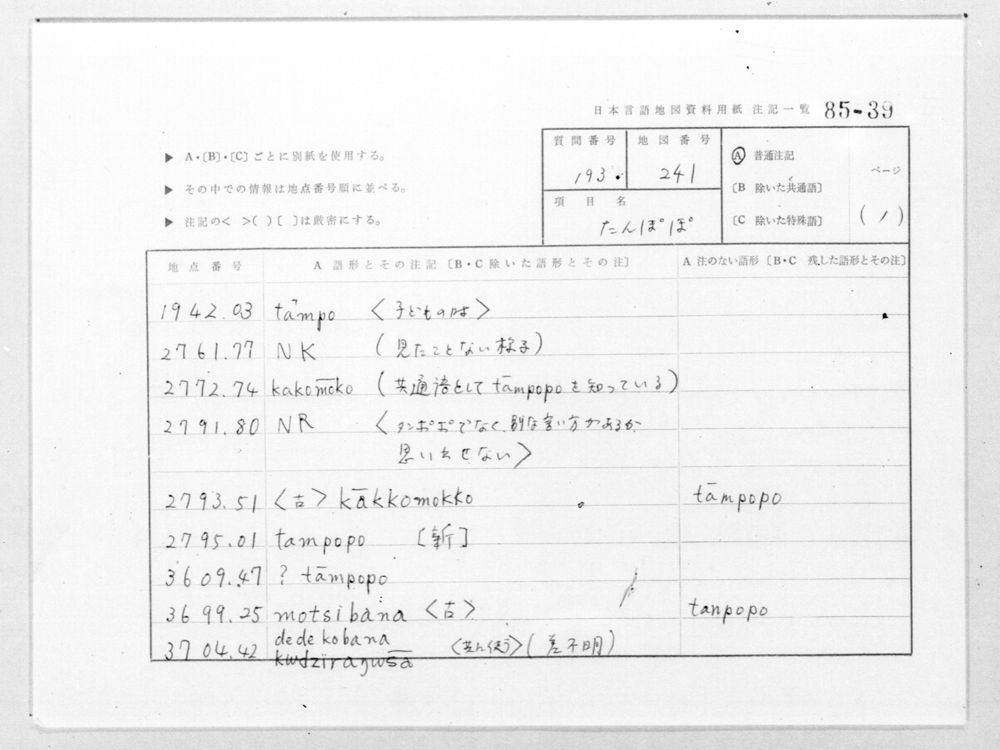 日本言語地図資料用紙 注記一覧 85-39
▶ A・〔B〕・〔C〕ごとに別紙を使用する。
▶ その中での情報は地点番号順に並べる。
▶ 注記の< >( )[ ]は厳密にする。
質問番号 地図番号
193. 241
項目名
たんぽぽ
Ⓐ 普通注記
〔B 除いた共通語〕
〔C 除いた特殊語〕
ページ
(1)
地点番号 A 語形とその注記〔B・C 除いた語形とその注〕 A 注のない語形〔B・C 残した語形とその注〕
1942.03 tāmpo <子どもの時>
2761.77 NK (見たことない様子)
2772.74 kakomōko (共通語としてtāmpopoを知っている)
2791.80 NR <タンポポでなく、別な言い方があるか
思い出せない>
2793.51 <古> kākkomokko tāmpopo
2795.01 tampopo [新]
3609.47 ? tāmpopo
3699.25 motsibana <古> tanpopo
3704.42 dedekobana
kɯdzïraŋɯsā <共に使う>(差不明)